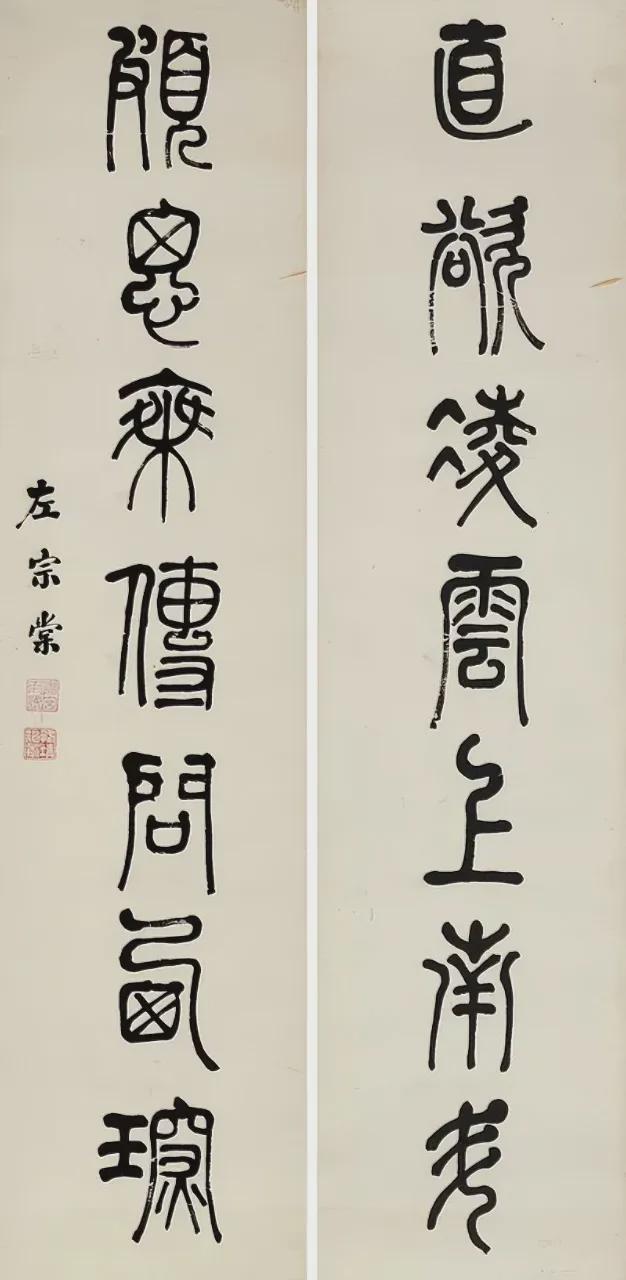 直欲凌雲上南斗
頗思乘傳問西琛
左宗棠